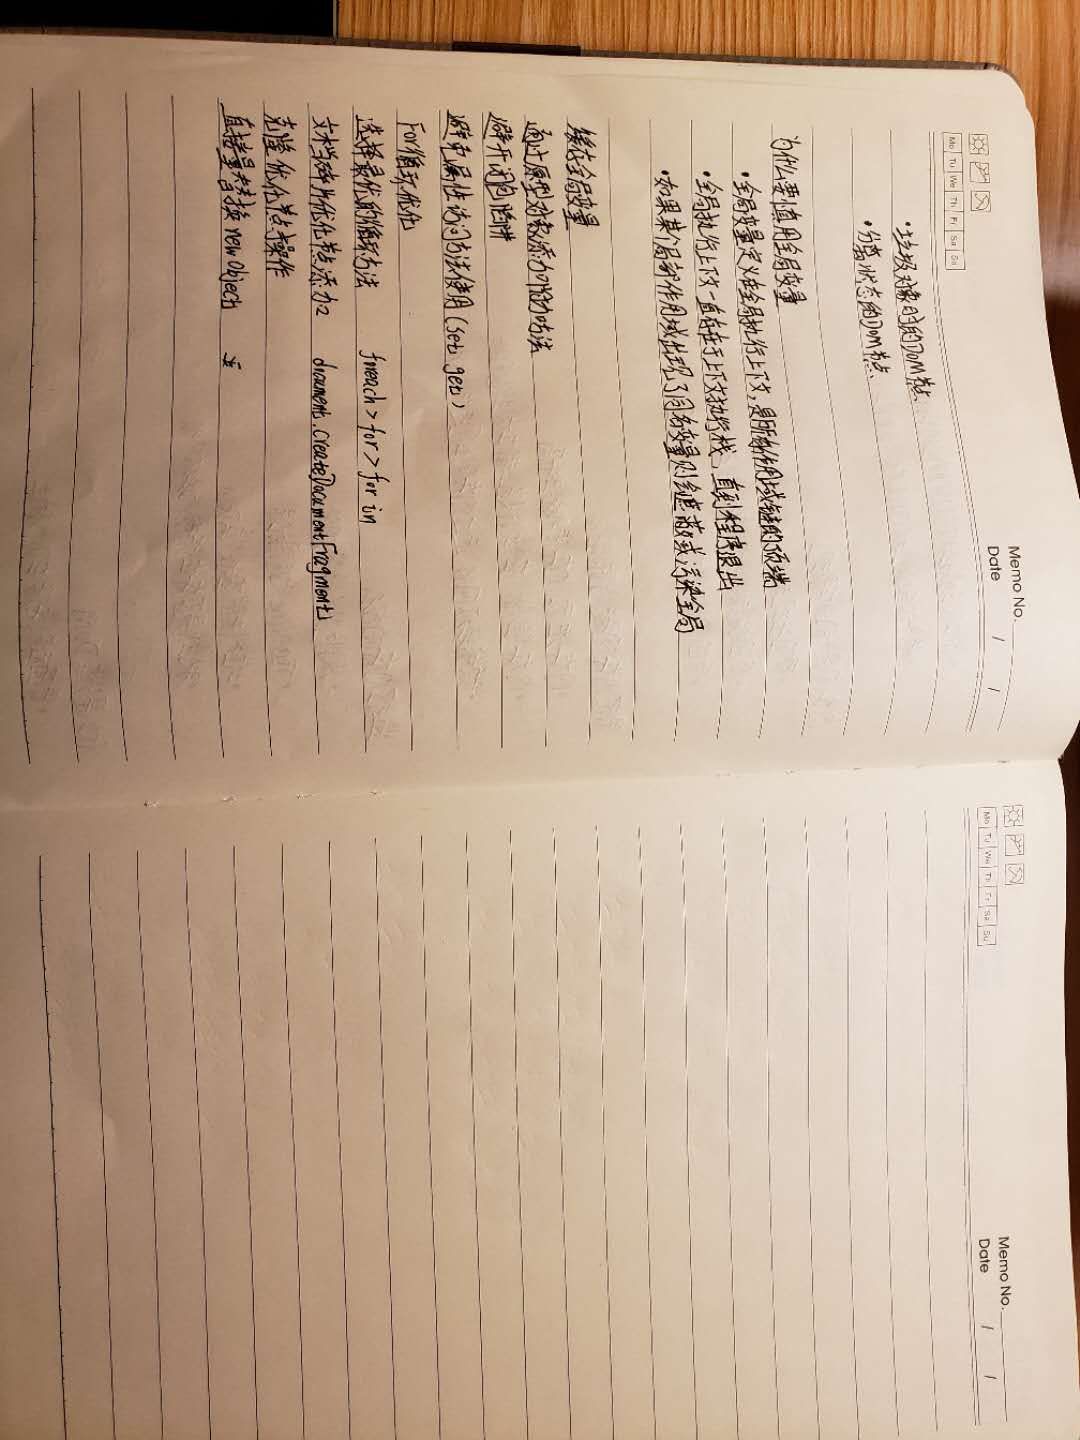 Memo No.
Mo Tu We Th Fr Sa Su
Date / /
·垃圾对象时的DOM节点
·分离状态的DOM节点
为什么要慎用全局变量
·全局变量定义在全局执行上下文,是所有作用域链的顶端
·全局执行上下文一直存在于上下文执行栈、直到程序退出
·如果某个局部作用域出现了同名变量则会遮蔽或污染全局
缓存全局变量
通过原型对象添加附加方法
避开闭包陷阱
避免属性访问方法使用(set, get)
For循环优化
选择最优的循环方法 foreach > for > for in
文档碎片优化节点添加 document.createDocumentFragment()
克隆优化节点操作
直接量替换 new Object
Memo No.
Mo Tu We Th Fr Sa Su
Date / /